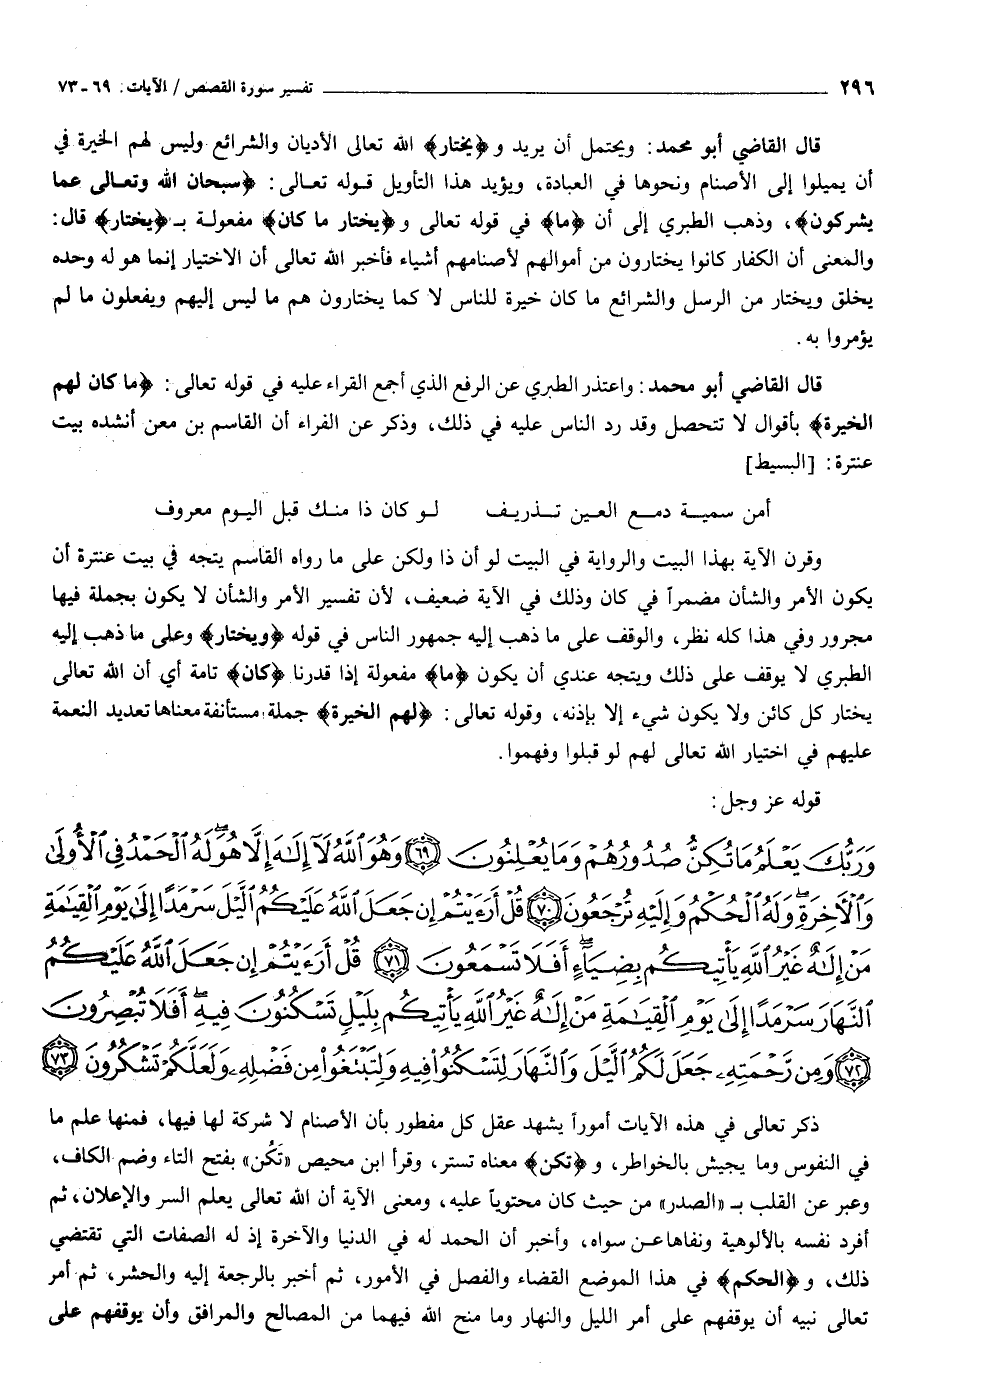 ٢٩٦ ـــــ تفسير سورة القصص / الآيات: ٦٩ - ٧٣
قال القاضي أبو محمد: ويحتمل أن يريد و﴿يختار﴾ الله تعالى الأديان والشرائع وليس لهم الخيرة في
أن يميلوا إلى الأصنام ونحوها في العبادة، ويؤيد هذا التأويل قوله تعالى: ﴿سبحان الله وتعالى عما
يشركون﴾، وذهب الطبري إلى أن ﴿ما﴾ في قوله تعالى و﴿يختار ما كان﴾ مفعولة بـ﴿يختار﴾ قال:
والمعنى أن الكفار كانوا يختارون من أموالهم لأصنامهم أشياء فأخبر الله تعالى أن الاختيار إنما هو له وحده
يخلق ويختار من الرسل والشرائع ما كان خيرة للناس لا كما يختارون هم ما ليس إليهم ويفعلون ما لم
يؤمروا به.
قال القاضي أبو محمد: واعتذر الطبري عن الرفع الذي أجمع القراء عليه في قوله تعالى: ﴿ما كان لهم
الخيرة﴾ بأقوال لا تتحصل وقد رد الناس عليه في ذلك، وذكر عن الفراء أن القاسم بن معن أنشده بيت
عنترة: [البسيط]
أمن سمية دمع العين تذريف لو كان ذا منك قبل اليوم معروف
وقرن الآية بهذا البيت والرواية في البيت لو أن ذا ولكن على ما رواه القاسم يتجه في بيت عنترة أن
يكون الأمر والشأن مضمراً في كان وذلك في الآية ضعيف، لأن تفسير الأمر والشأن لا يكون بجملة فيها
مجرور وفي هذا كله نظر، والوقف على ما ذهب إليه جمهور الناس في قوله ﴿ويختار﴾ وعلى ما ذهب إليه
الطبري لا يوقف على ذلك ويتجه عندي أن يكون ﴿ما﴾ مفعولة إذا قدرنا ﴿كان﴾ تامة أي أن الله تعالى
يختار كل كائن ولا يكون شيء إلا بإذنه، وقوله تعالى: ﴿لهم الخيرة﴾ جملة مستأنفة معناها تعديد النعمة
عليهم في اختيار الله تعالى لهم لو قبلوا وفهموا.
قوله عز وجل:
وَرَبُّكَ يَعْلَمُ مَا تُكِنُّ صُدُورُهُمْ وَمَا يُعْلِنُونَ ﴿٦٩﴾ وَهُوَ اللَّهُ لَا إِلَٰهَ إِلَّا هُوَ ۖ لَهُ الْحَمْدُ فِي الْأُولَىٰ
وَالْآخِرَةِ ۖ وَلَهُ الْحُكْمُ وَإِلَيْهِ تُرْجَعُونَ ﴿٧٠﴾ قُلْ أَرَءَيْتُمْ إِن جَعَلَ اللَّهُ عَلَيْكُمُ اللَّيْلَ سَرْمَدًا إِلَىٰ يَوْمِ الْقِيَامَةِ
مَنْ إِلَٰهٌ غَيْرُ اللَّهِ يَأْتِيكُم بِضِيَاءٍ ۖ أَفَلَا تَسْمَعُونَ ﴿٧١﴾ قُلْ أَرَءَيْتُمْ إِن جَعَلَ اللَّهُ عَلَيْكُمُ
النَّهَارَ سَرْمَدًا إِلَىٰ يَوْمِ الْقِيَامَةِ مَنْ إِلَٰهٌ غَيْرُ اللَّهِ يَأْتِيكُم بِلَيْلٍ تَسْكُنُونَ فِيهِ ۖ أَفَلَا تُبْصِرُونَ
﴿٧٢﴾ وَمِن رَّحْمَتِهِ جَعَلَ لَكُمُ اللَّيْلَ وَالنَّهَارَ لِتَسْكُنُوا فِيهِ وَلِتَبْتَغُوا مِن فَضْلِهِ وَلَعَلَّكُمْ تَشْكُرُونَ ﴿٧٣﴾
ذكر تعالى في هذه الآيات أموراً يشهد عقل كل مفطور بأن الأصنام لا شركة لها فيها، فمنها علم ما
في النفوس وما يجيش بالخواطر، و﴿تكن﴾ معناه تستر، وقرأ ابن محيص «تَكُن» بفتح التاء وضم الكاف،
وعبر عن القلب بـ«الصدر» من حيث كان محتوياً عليه، ومعنى الآية أن الله تعالى يعلم السر والإعلان، ثم
أفرد نفسه بالألوهية ونفاها عن سواه، وأخبر أن الحمد له في الدنيا والآخرة إذ له الصفات التي تقتضي
ذلك، و﴿الحكم﴾ في هذا الموضع القضاء والفصل في الأمور، ثم أخبر بالرجعة إليه والحشر، ثم أمر
تعالى نبيه أن يوقفهم على أمر الليل والنهار وما منح الله فيهما من المصالح والمرافق وأن يوقفهم على